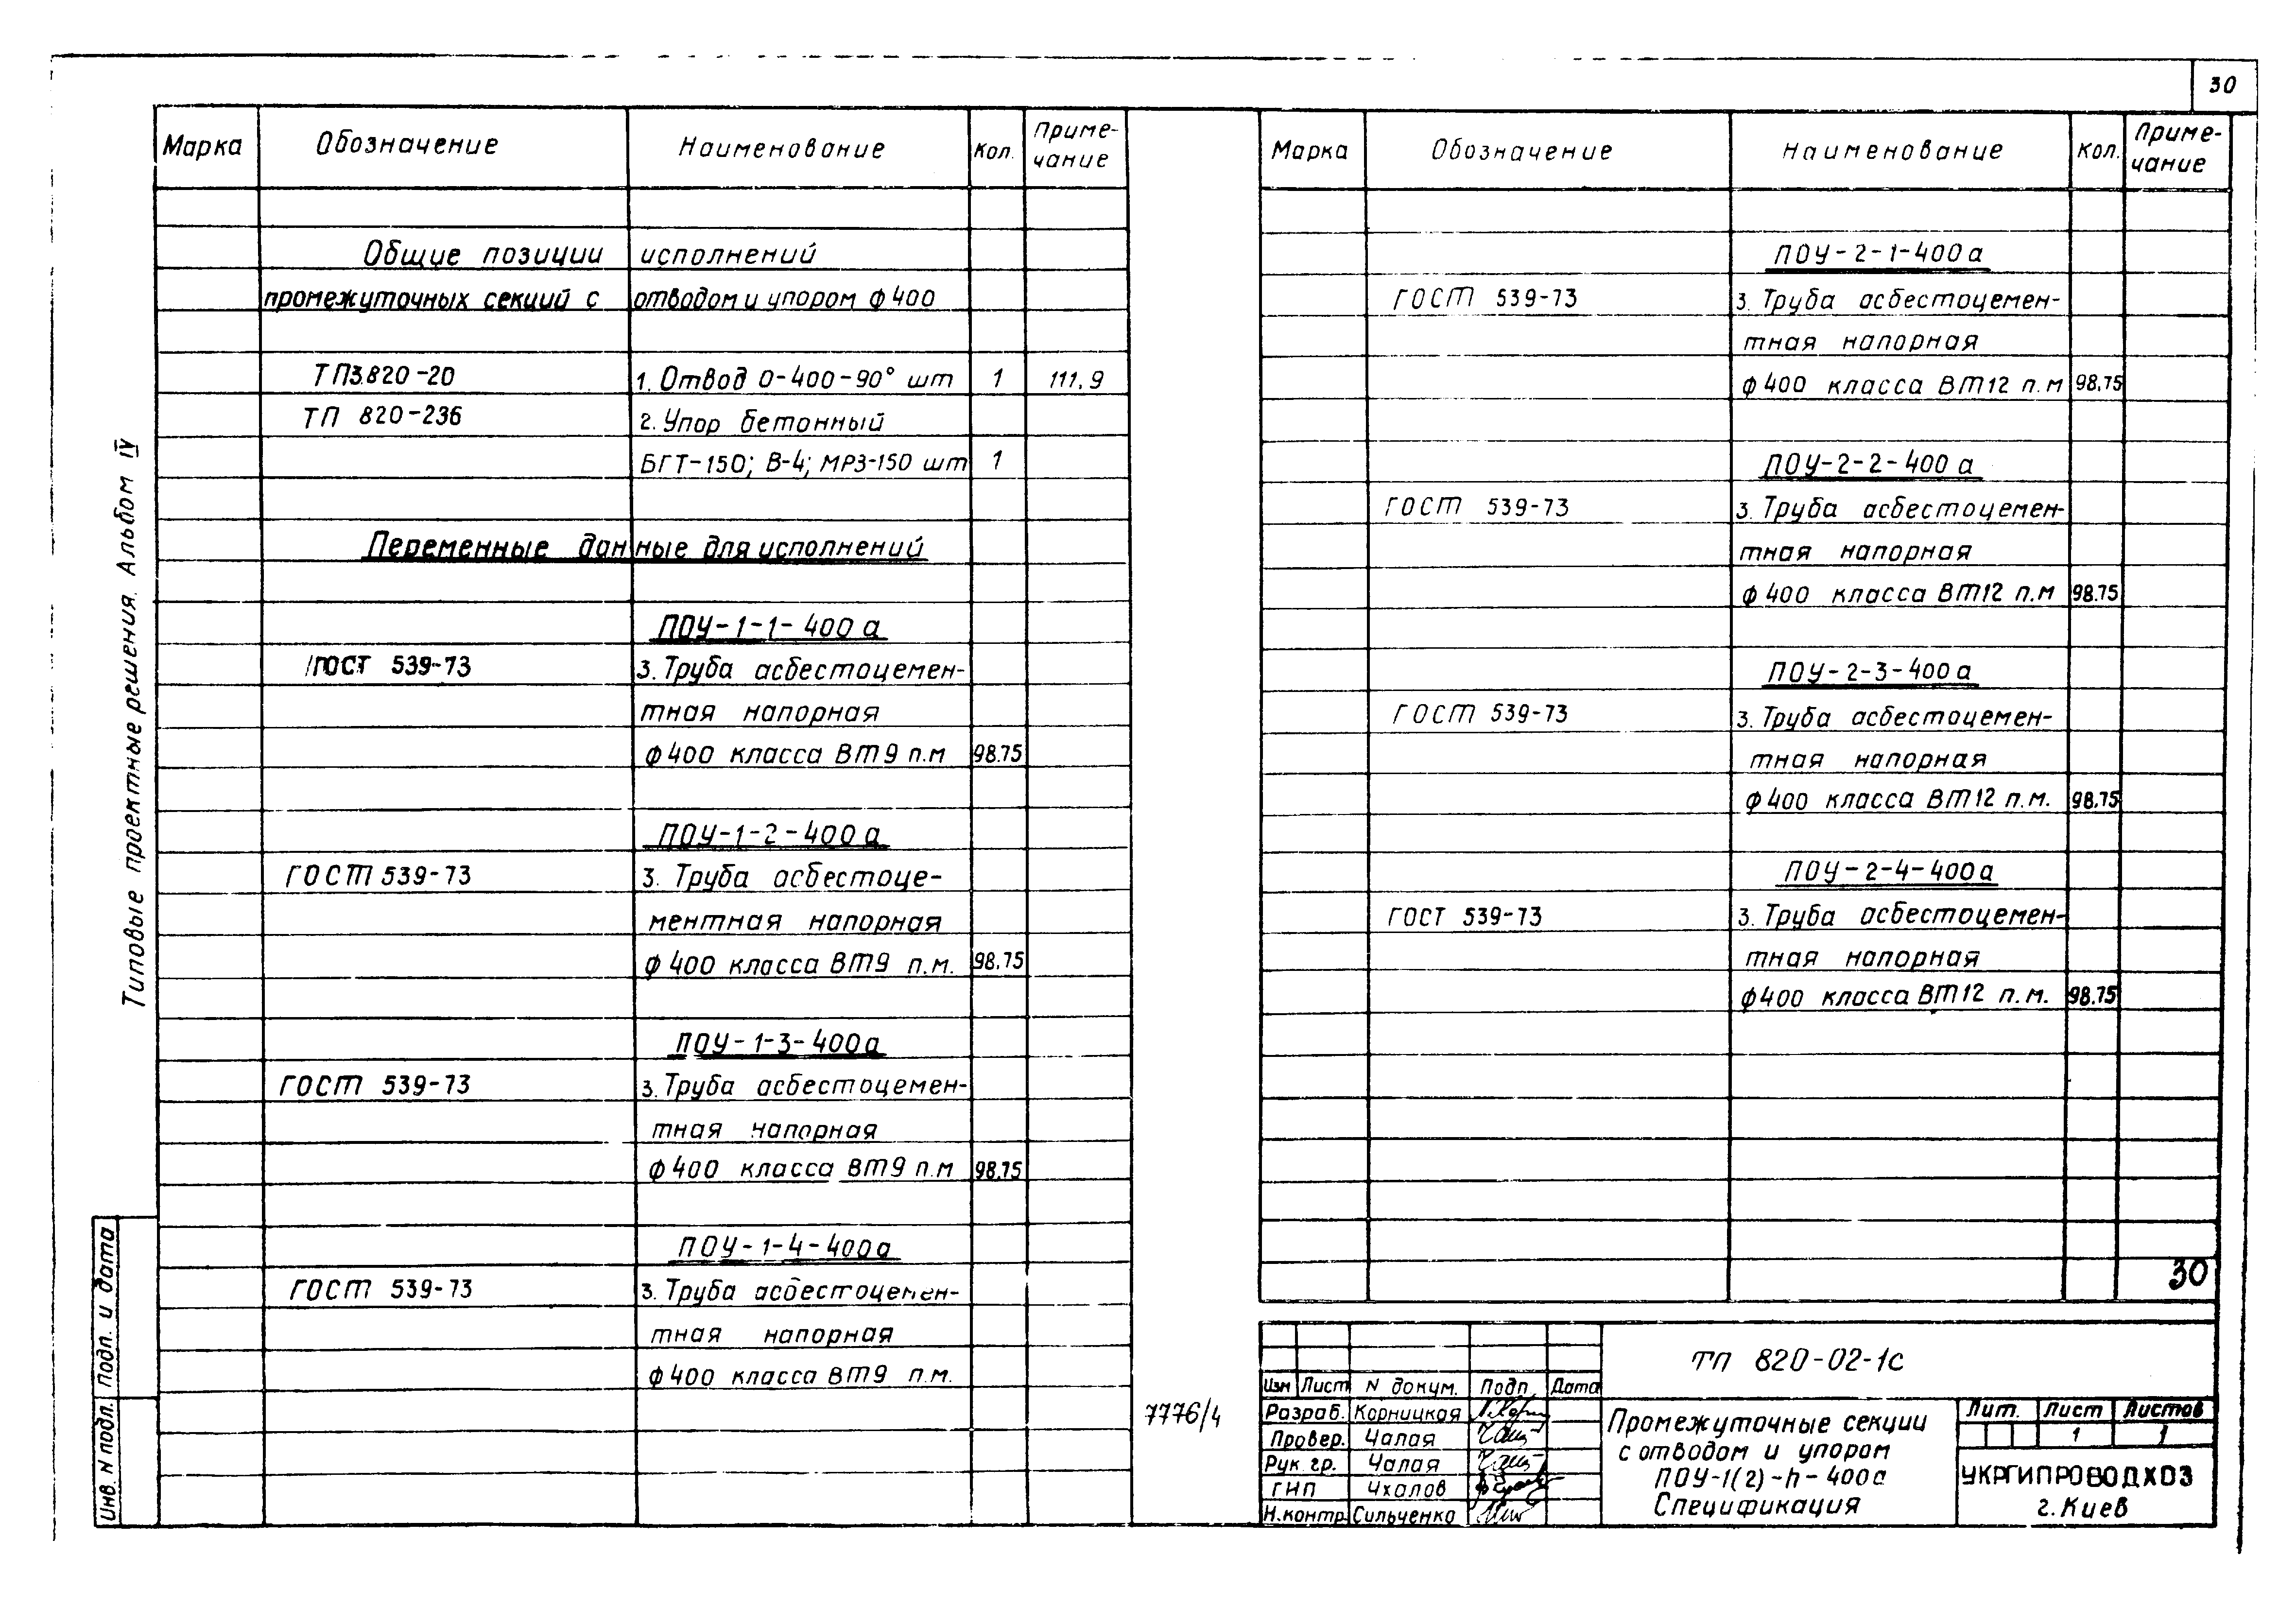 30
Марка Обозначение Наименование Кол. Приме-
чание
Общие позиции исполнений
промежуточных секций с отводом и упором ф400
ТП3.820-20 1. Отвод О-400-90° шт 1 111,9
ТП 820-236 2. Упор бетонный
БГТ-150; В-4; МРЗ-150 шт 1
Переменные данные для исполнений
ПОУ-1-1-400а
ГОСТ 539-73 3. Труба асбестоцемен-
тная напорная
ф400 класса ВТ9 п.м 98.75
ПОУ-1-2-400а
ГОСТ 539-73 3. Труба асбестоце-
ментная напорная
ф400 класса ВТ9 п.м. 98,75
ПОУ-1-3-400а
ГОСТ 539-73 3. Труба асбестоцемен-
тная напорная
ф400 класса ВТ9 п.м 98,75
ПОУ-1-4-400а
ГОСТ 539-73 3. Труба асбестоцемен-
тная напорная
ф400 класса ВТ9 п.м.
Марка Обозначение Наименование Кол. Приме-
чание
ПОУ-2-1-400а
ГОСТ 539-73 3. Труба асбестоцемен-
тная напорная
ф400 класса ВТ12 п.м 98,75
ПОУ-2-2-400а
ГОСТ 539-73 3. Труба асбестоцемен-
тная напорная
ф400 класса ВТ12 п.м 98.75
ПОУ-2-3-400а
ГОСТ 539-73 3. Труба асбестоцемен-
тная напорная
ф400 класса ВТ12 п.м. 98,75
ПОУ-2-4-400а
ГОСТ 539-73 3. Труба асбестоцемен-
тная напорная
ф400 класса ВТ12 п.м. 98.75
30
Типовые проектные решения. Альбом IV
Инв. N подл. Подп. и дата
7776/4
ТП 820-02-1с
Изм Лист N докум. Подп. Дата
Разраб. Корницкая
Провер. Чалая
Рук. гр. Чалая
ГИП Чхалов
Н.контр. Сильченко
Промежуточные секции
с отводом и упором
ПОУ-1(2)-n-400а
Спецификация
Лит. Лист Листов
1 1
УКРГИПРОВОДХОЗ
г. Киев